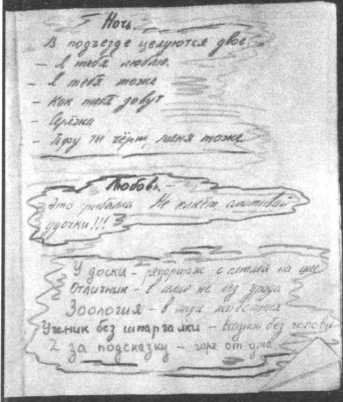 Ночь.
В подъезде целуются двое:
- Я тебя люблю.
- Я тебя тоже
- Как тебя зовут
- Серёжа
- Тьфу ты чёрт, меня тоже
Любовь –
Это рыбалка. Не клюёт сматывай
удочки!!!
У доски – репортаж с петлёй на шее
Отличник – в семье не без урода
Зоология – в мире животных
Ученик без шпаргалки – всадник без головы
2 за подсказку – горе от ума